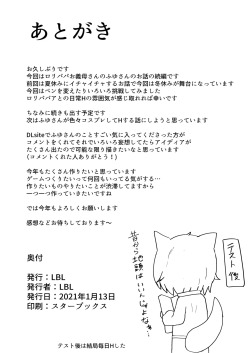 あとがき
お久しぶりです
今回はロリババお義母さんのふゆさんのお話の続編です
前回は夏休みにイチャイチャするお話でしたが今回は冬休みが舞台になっています
今回はペンを変えたりいろいろ挑戦してみました
ロリババアとの日常Hの雰囲気が感じ取れれば幸いです
ちなみに続きも出す予定です
次はふゆさんが色々コスプレしてHする話にしようと思っています
DLsiteでふゆさんのことすごい気に入ってくださった方が
コメントをくれてそれでいろいろ妄想してたらアイディアが
たくさん出たので可能な限り描きたいなと思っています
(コメントくれた人ありがとう！)
今年もたくさん作りたいと思っています
ゲームつくりたいって何回もいってる気がする…
作りたいものやりたいことが渋滞してますから
一つ一つ作っていきたいですね
では今年もよろしくお願いします
感想などお待ちしております～
奥付
発行：LBL
発行者：LBL
発行日：2021年1月13日
印刷：スターブックス
テスト後
昔から地頭は
いいんじゃよなぁ…
テスト後は結局毎日Hした